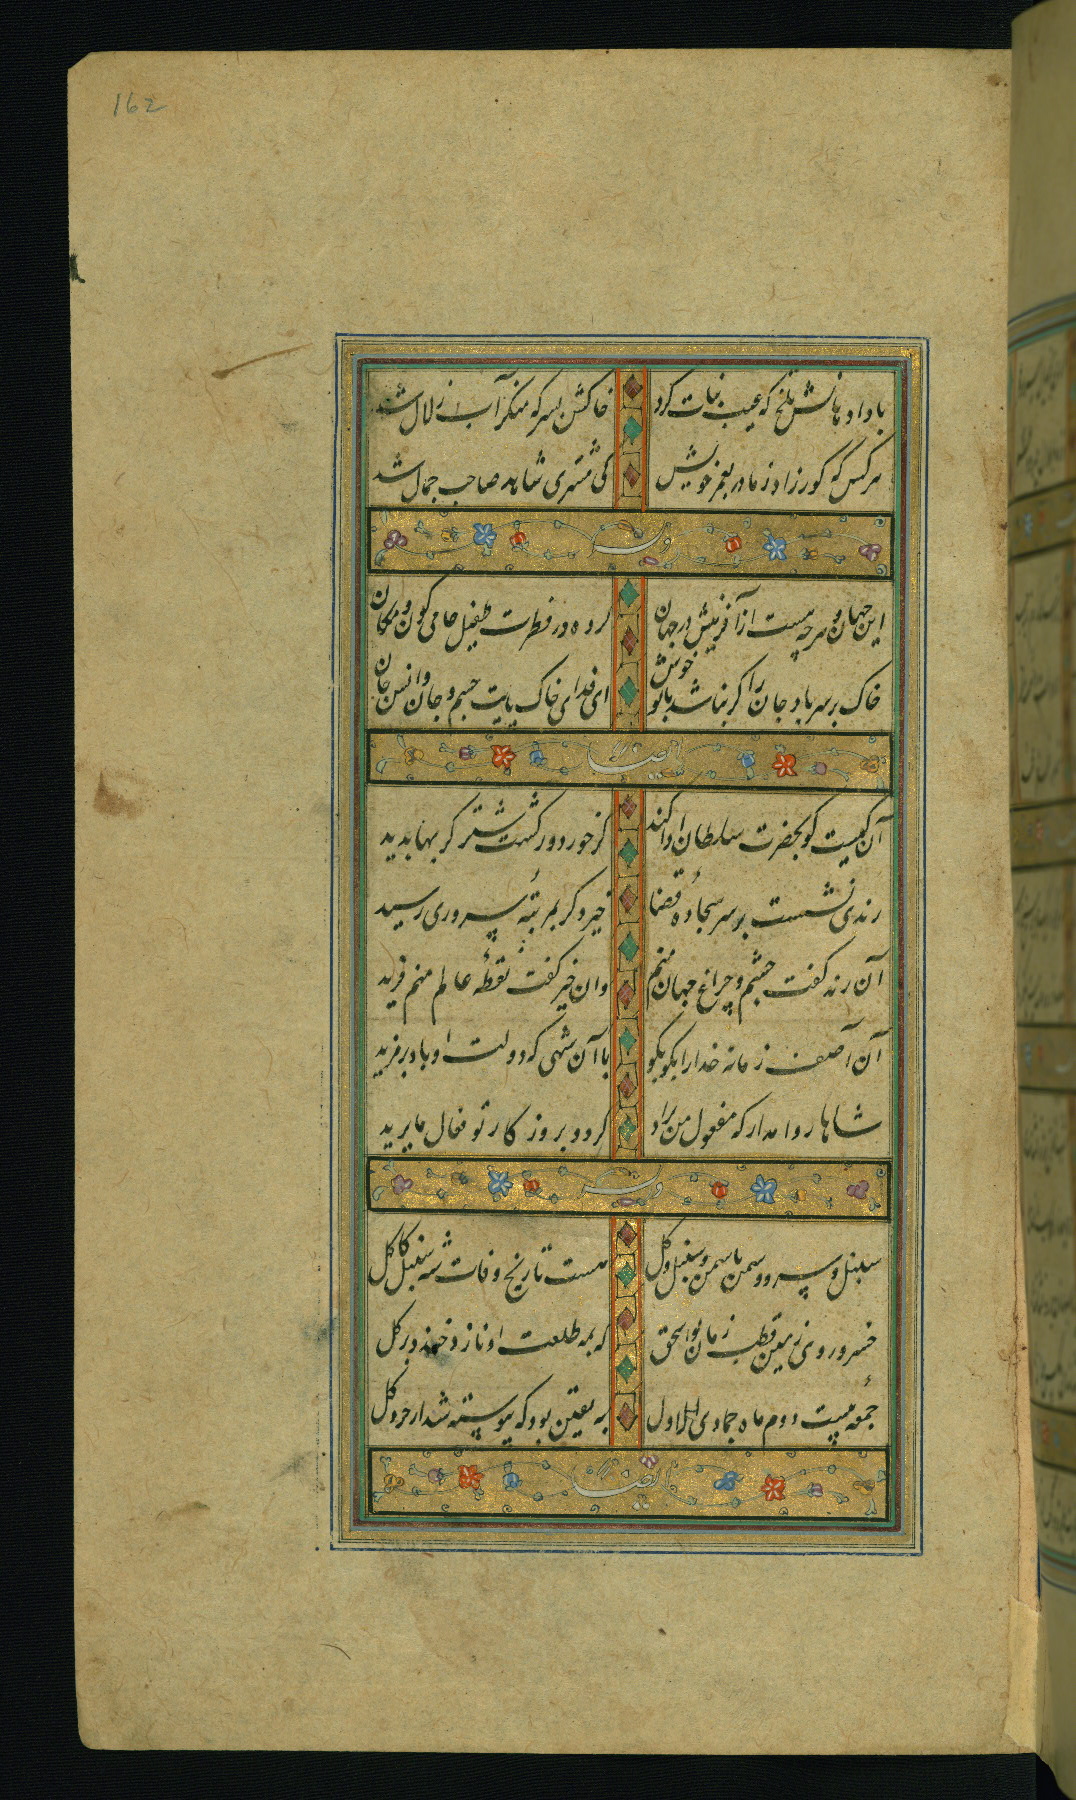 162
بادا دهانش تلخ که عیب نبات کرد
خاکش بسر که منکر آب زلال شد
هرکس که کور زاد ز مادر بعمر خویش
کی مشتری شاهد صاحب جمال شد
وله
این جهان و هرچه هست از آفرینش در جهان
کرده در فطرت طفیل حامی کون و مکان
خاک بر سر باد جان را گر نباشد با تو خوش
ای فدای خاک پایت جسم و جان و انس و جان
ایضا
آن کیست کو بحضرت سلطان ادا کند
کز خور دور گشت شتر گربها بدید
رندی نشست بر سر سجاده قضا
خیر دگر بمرتبه سروری رسید
آن رند گفت چشم و چراغ جهان منم
وان خیر گفت نقطه عالم منم فرید
آن آصف زمانه خدا را بگو بگو
با آن شهی که دولت او باد بر مزید
شاها روا مدار که مفعول من یراد
گردد بروزگار تو فعال ما یرید
وله
سنبل و سرو و سمن یاسمن و سنبل و گل
هست تاریخ وفات شه سنبل کاکل
خسرو روی زمین قطب زمان بو اسحق
که بمه طلعت او نازد و خندد بر گل
جمعه بیست دوم ماه جمادی الاول
به یقین بود که پیوسته شد از جزو کل
ایضا